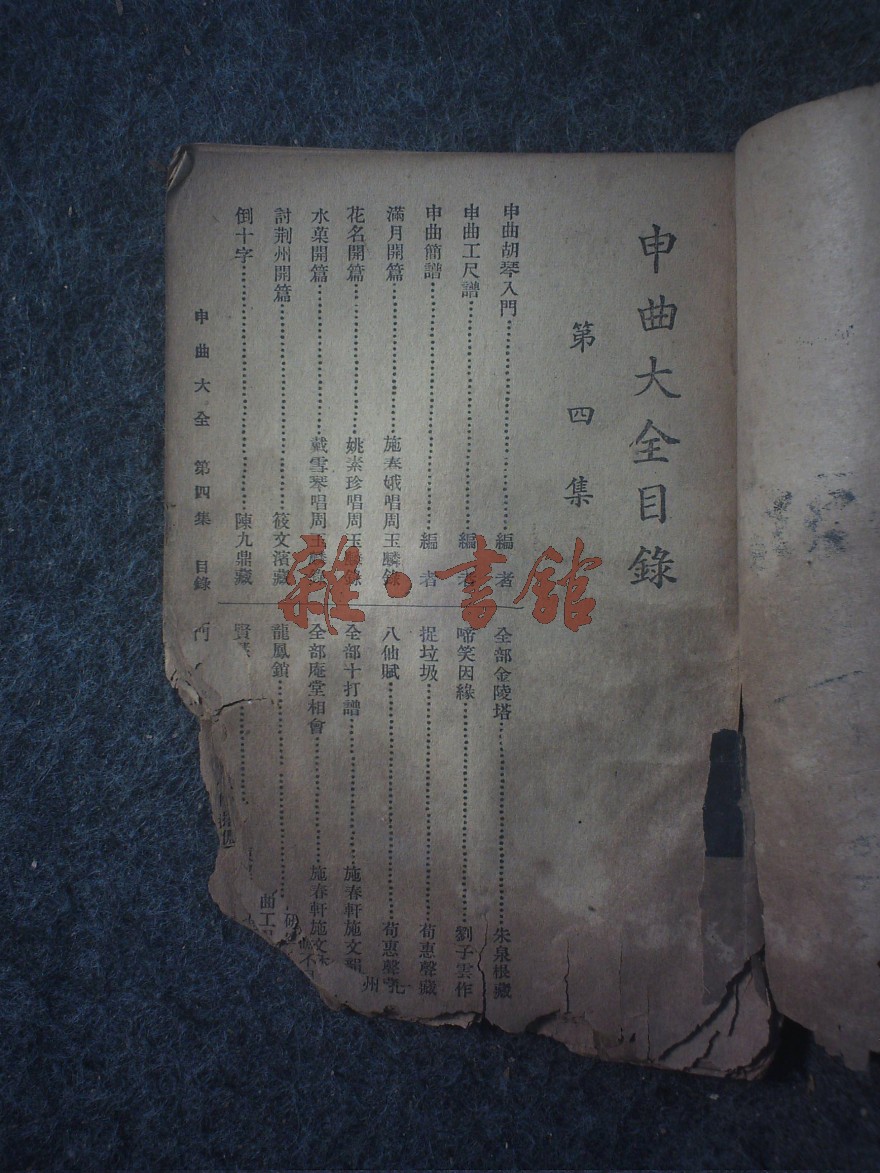 申曲大全目錄
第四集
申曲胡琴入門⋯⋯編者
申曲工尺譜⋯⋯編者
申曲簡譜⋯⋯編者
滿月開篇⋯⋯施春娥唱周玉麟錄
花名開篇⋯⋯姚素珍唱周玉麟錄
水菓開篇⋯⋯戴雪琴唱周玉
討荆州開篇⋯⋯筱文濱藏
倒十字⋯⋯陳九鼎藏
全部金陵塔⋯⋯朱泉根藏
啼笑因緣⋯⋯劉子雲作
捉垃圾⋯⋯荀惠聲藏
八仙賦⋯⋯荀惠聲
全部十打譜⋯⋯施春軒施文韻
全部庵堂相會⋯⋯施春軒施文
龍鳳鎖⋯⋯
賢
申曲大全 第四集 目錄
雜·書館